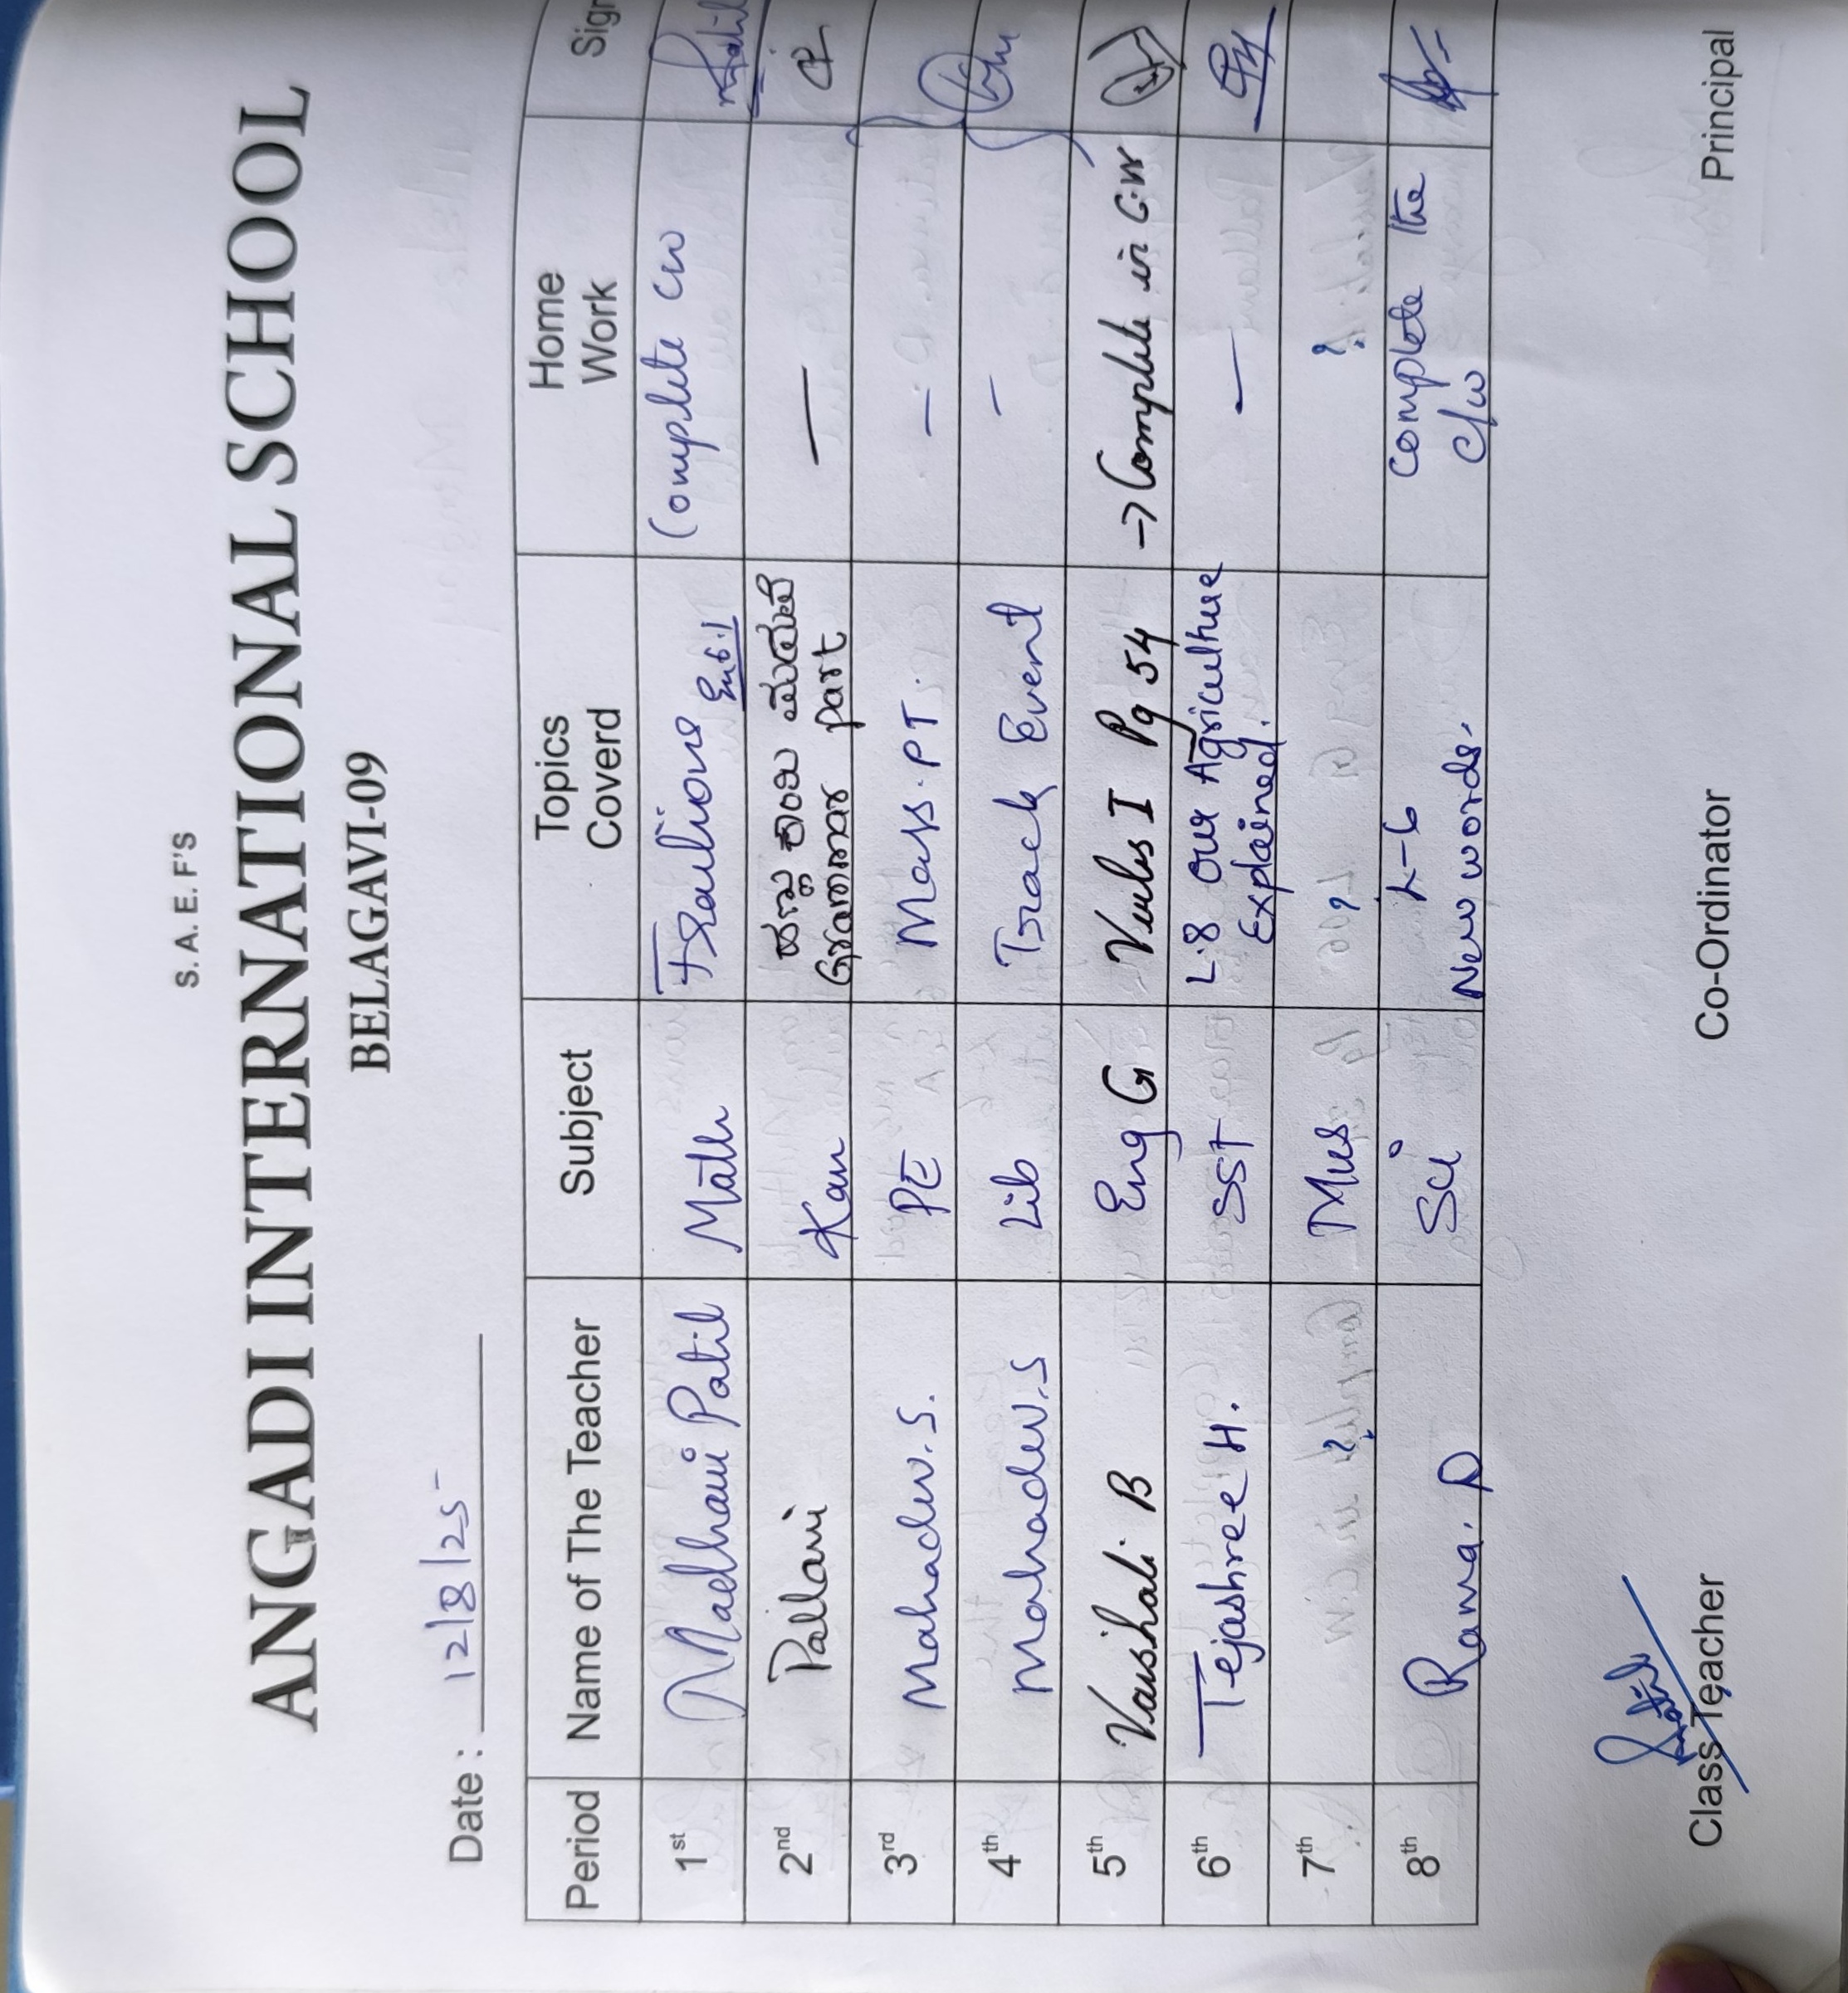 S. A. E. F'S
ANGADI INTERNATIONAL SCHOOL
BELAGAVI-09
Date : 12/8/25
Period Name of The Teacher Subject Topics Coverd Home Work Sign
1st Madhavi Patil Math Fractions Ex 6.1 Complete CW Patil
2nd Pallavi Kan ಹಣ್ಣು
Grammar part —
3rd Mahadev.S. PE Mass.PT. –
4th Mahadev.S Lib Track Event –
5th Vaishali B Eng G Verbs I Pg 54 → Complete in C.W
6th Tejashree H. SST L.8 Our Agriculture
Explained. —
7th ? Mus ? ?
8th Rama. D Sci L-6 Complete the
New words. C/w
Patil
Class Teacher Co-Ordinator Principal